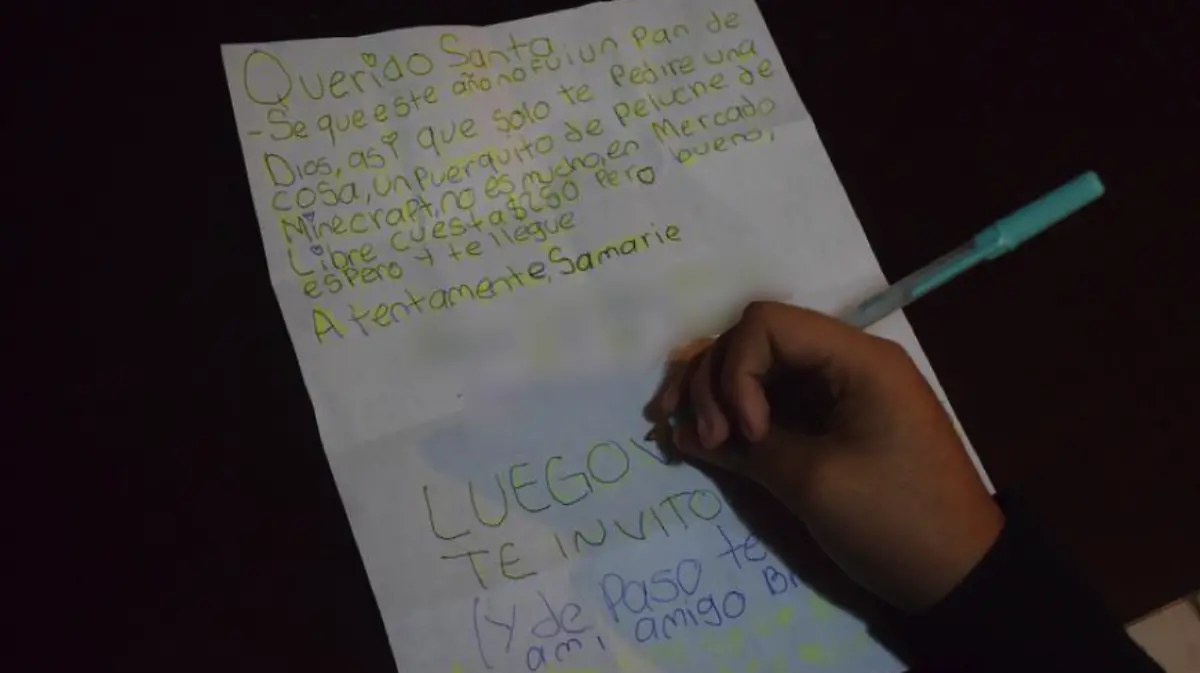 Querido Santa
-Se que este año no fui un pan de
Dios, así que solo te pedire una
cosa, un puerquito de peluche de
Minecraft, no es mucho, en Mercado
Libre cuesta $250 pero bueno,
espero y te llegue
Atentamente, Samarie
LUEGO
TE INVITO
(Y de Paso te
a mi amigo